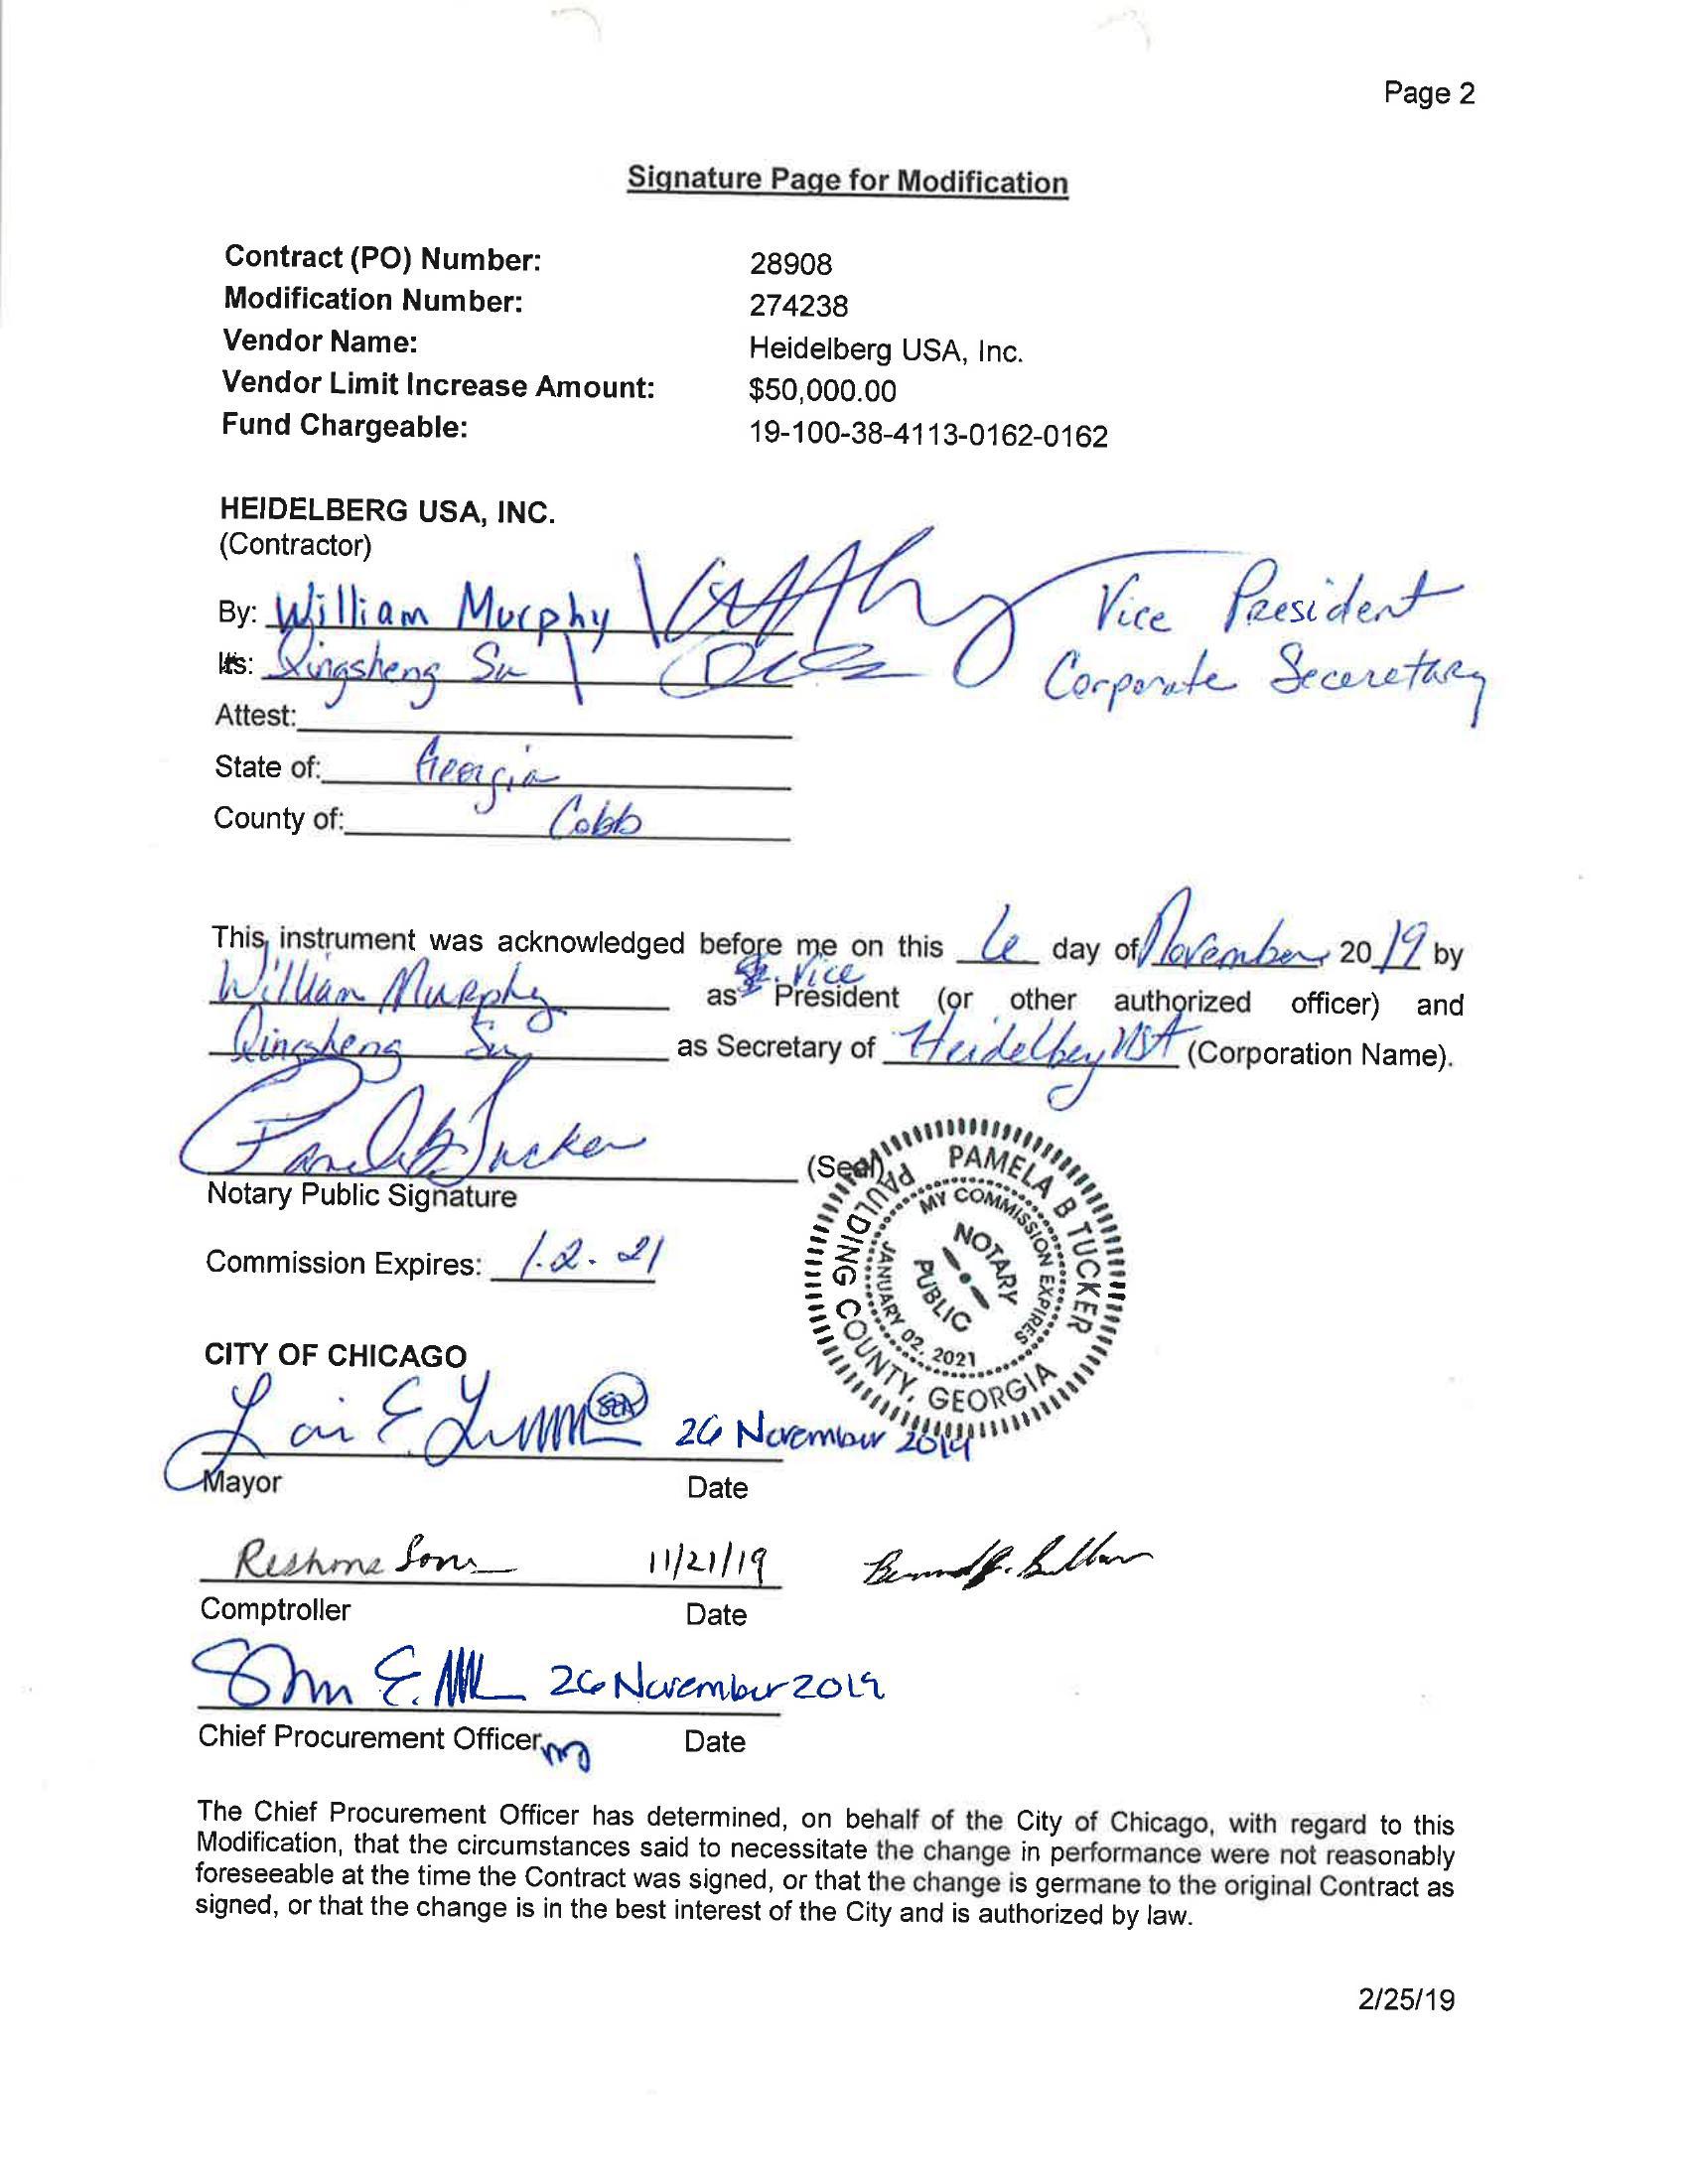 Page 2
Signature Page for Modification
Contract (PO) Number: 28908
Modification Number: 274238
Vendor Name: Heidelberg USA, Inc.
Vendor Limit Increase Amount: $50,000.00
Fund Chargeable: 19-100-38-4113-0162-0162
HEIDELBERG USA, INC.
(Contractor)
By: William Murphy Vice President
Its: Qingsheng Su Corporate Seceretary
Attest:
State of: Georgia
County of: Cobb
This instrument was acknowledged before me on this 6 day of November 2019 by
William Murphy as Sr. Vice President (or other authorized officer) and
Qingsheng Su as Secretary of Heidelberg USA (Corporation Name).
Pamela B Tucker
(Seal)
Notary Public Signature
PAMELA B TUCKER
MY COMMISSION EXPIRES
NOTARY
PUBLIC
JANUARY 02, 2021
PAULDING COUNTY, GEORGIA
Commission Expires: 1.2.21
CITY OF CHICAGO
26 November 2019
Mayor Date
11/21/19
Comptroller Date
26 November 2019
Chief Procurement Officer Date
The Chief Procurement Officer has determined, on behalf of the City of Chicago, with regard to this
Modification, that the circumstances said to necessitate the change in performance were not reasonably
foreseeable at the time the Contract was signed, or that the change is germane to the original Contract as
signed, or that the change is in the best interest of the City and is authorized by law.
2/25/19